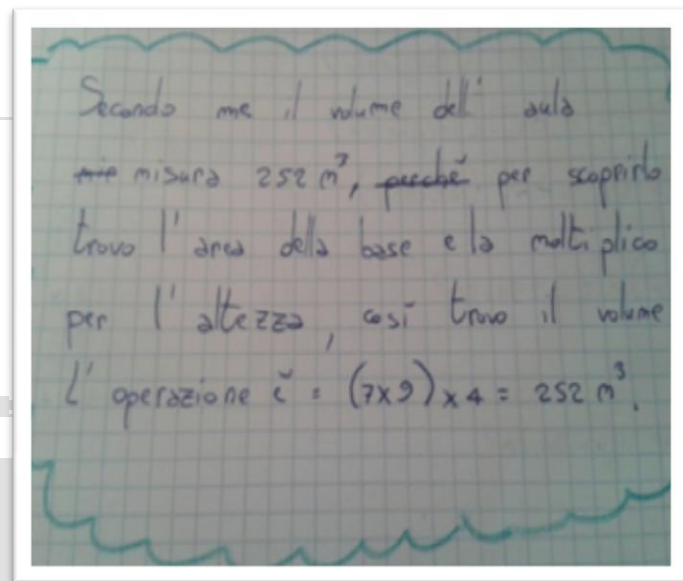 Secondo me il volume dell' aula
mie misura 252 m³, perché per scoprirlo
trovo l' area della base e la moltiplico
per l' altezza, così trovo il volume
L' operazione è: (7x9)x4 = 252 m³.